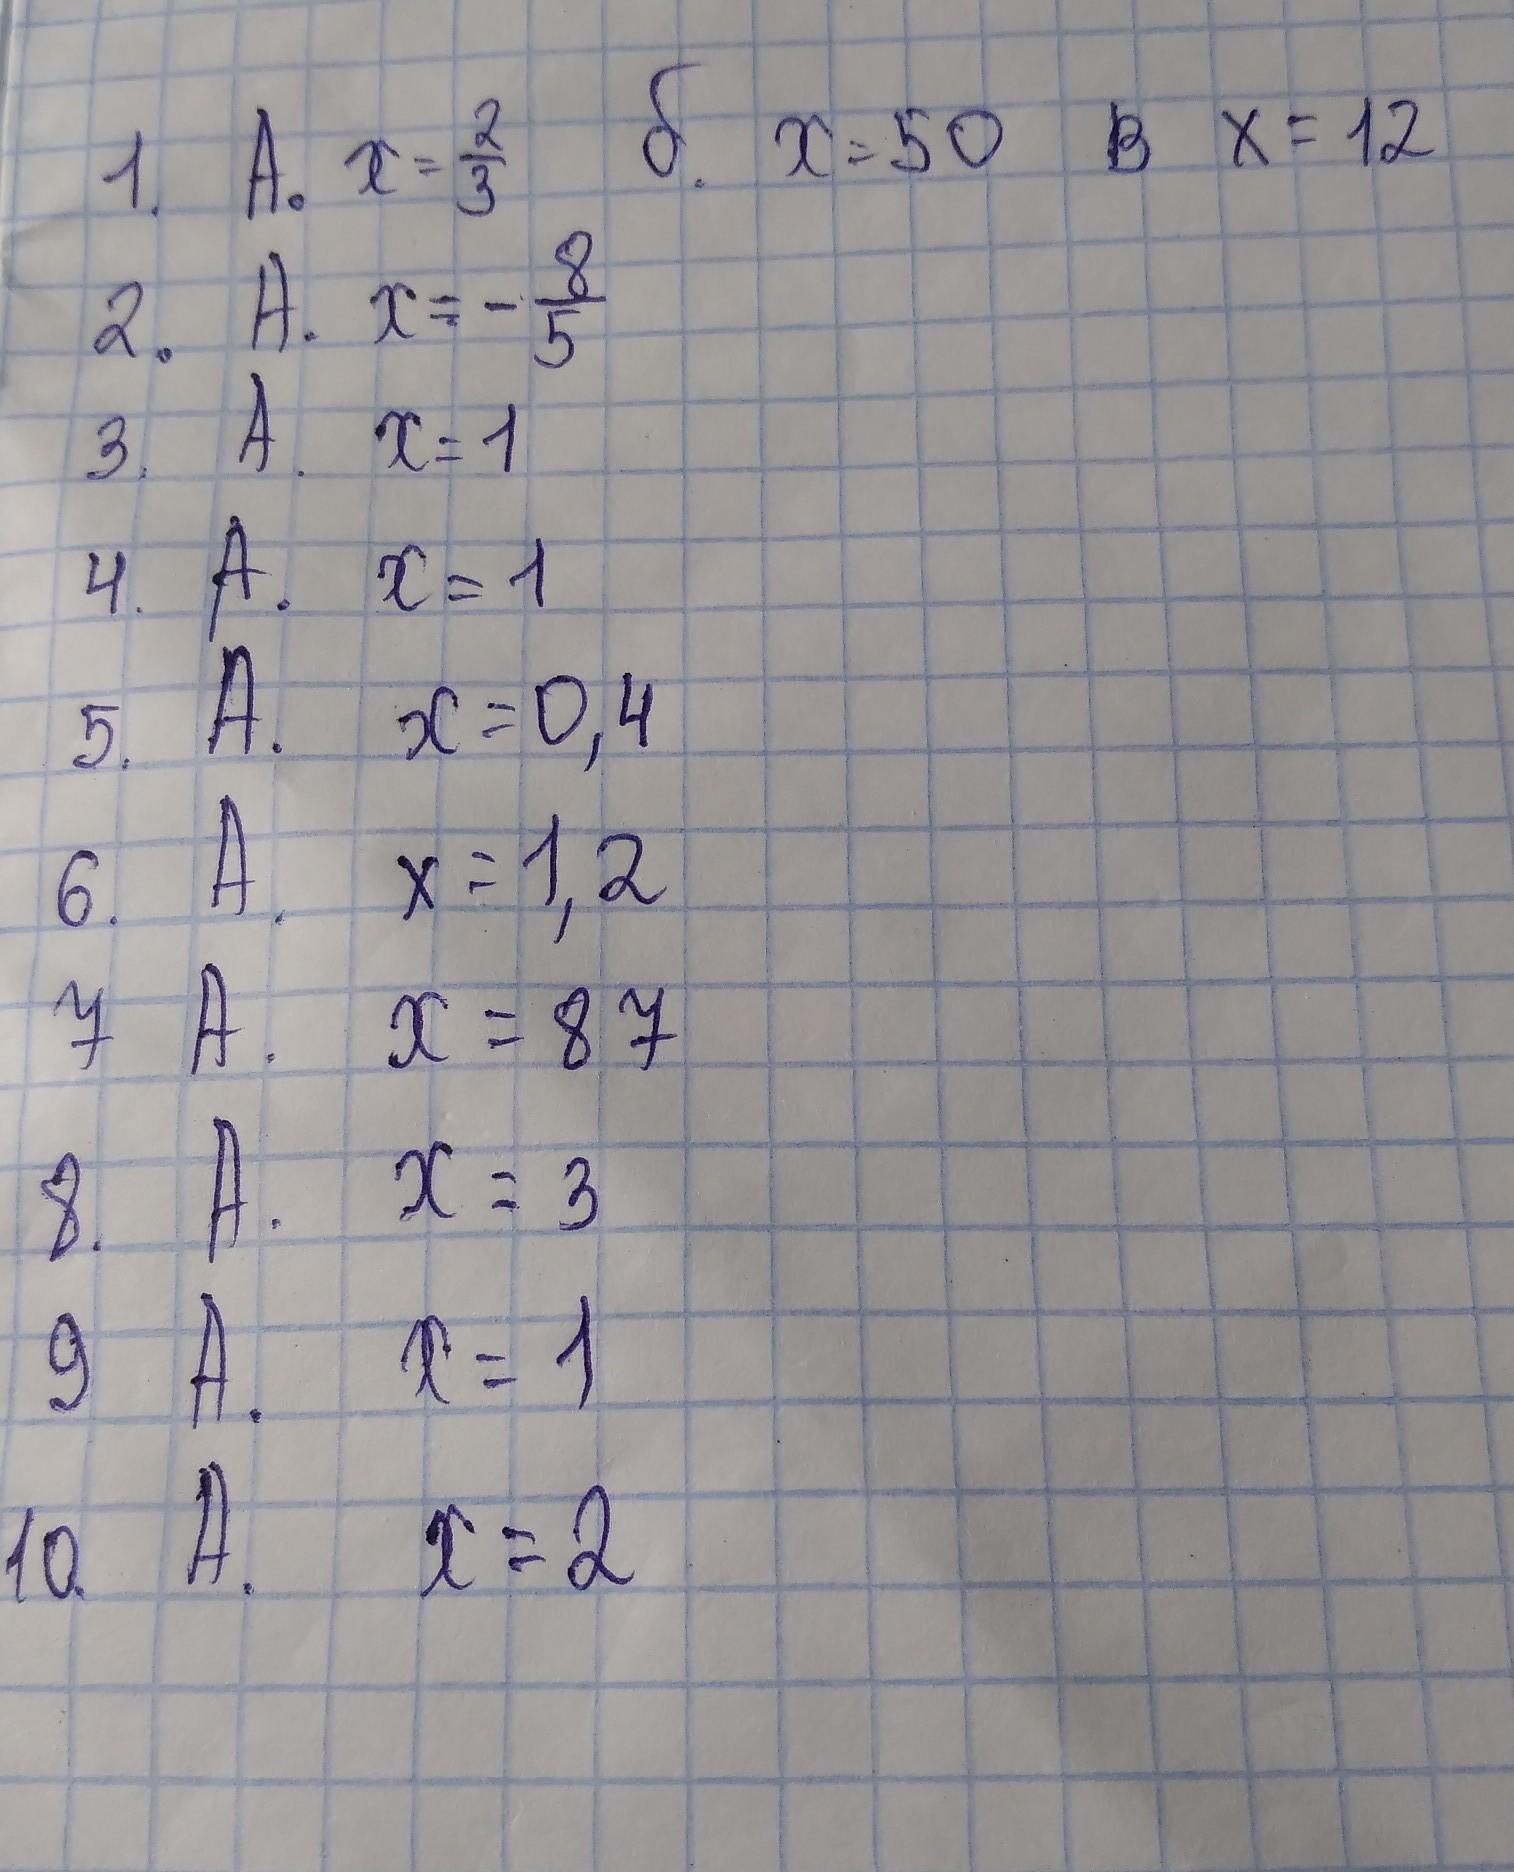 1. А. x = 2/3 б. x = 50 В x = 12
2. А. x = - 8/5
3. А. x = 1
4. А. x = 1
5. А. x = 0,4
6. А. x = 1,2
7 А. x = 87
8. А. x = 3
9 А. x = 1
10. А. x = 2